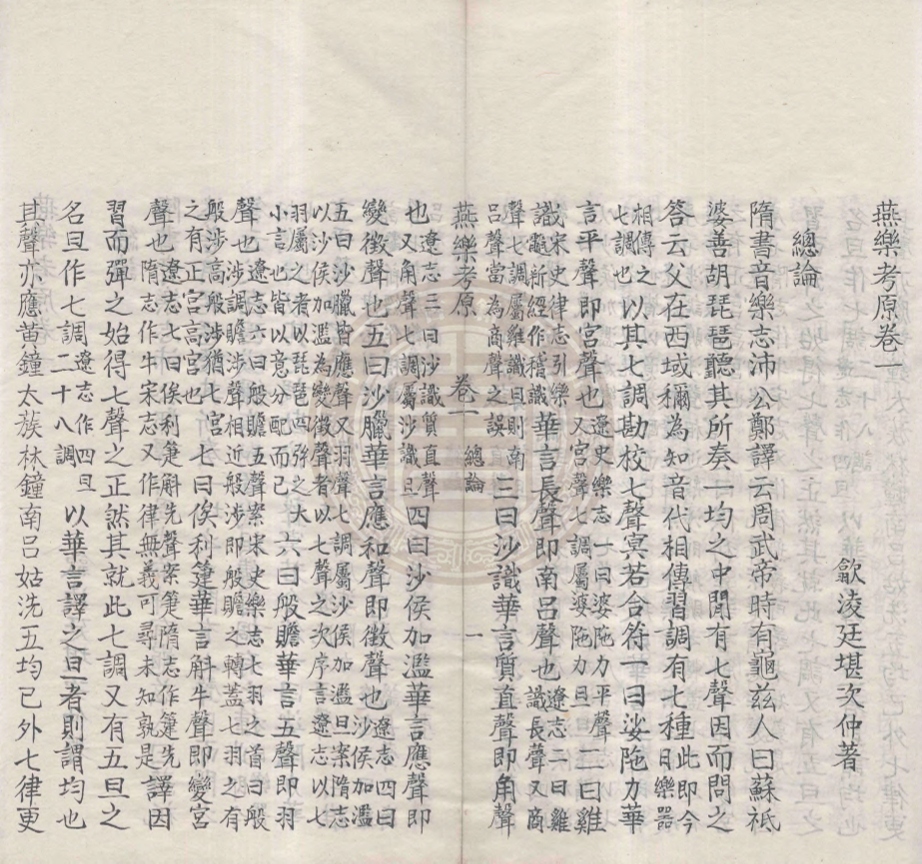 燕樂考原卷一
歙淩廷堪次仲著
總論
隋書音樂志沛公鄭譯云周武帝時有龜兹人曰蘇祗
婆善胡琵琶聽其所奏一均之中間有七聲因而問之
答云父在西域稱為知音代相傳習調有七種此即今日樂器
相傳之七調也以其七調勘校七聲冥若合符一曰娑陁力華
言平聲即宮聲也遼史樂志一曰婆陁力平聲又宮聲七調屬婆陁力旦二曰雞
識宋史律志引樂髓新經作稽識華言長聲即南呂聲也遼志二曰雞識長聲又商
聲七調屬雞識旦則南呂聲當為商聲之誤三曰沙識華言質直聲即角聲
燕樂考原 卷一 總論 一
也遼志三曰沙識質直聲又角聲七調屬沙識旦四曰沙侯加濫華言應聲即
變徵聲也五曰沙臘華言應和聲即徵聲也遼志四曰沙侯加濫
五曰沙臘皆應聲又羽聲七調屬沙侯加濫旦案隋志以沙侯加濫為變徵聲者以七聲之次序言遼志以七
羽屬之者以琵琶四弦之大小言也皆以意分配而已六曰般贍華言五聲即羽
聲也遼志六曰般贍五聲案宋史樂志七羽之首曰般涉調贍涉聲相近般涉即般贍之轉蓋七羽之有
般涉高般涉猶七宮之有正宮高宮也七曰俟利箑華言斛牛聲即變宮
聲也遼志七曰俟利箑斛先聲案箑隋志作箑先隋志作牛宋志又作律無義可尋未知孰是譯因
習而彈之始得七聲之正然其就此七調又有五旦之
名旦作七調遼志作四旦二十八調以華言譯之旦者則謂均也
其聲亦應黃鐘太族林鐘南呂姑洗五均已外七律更